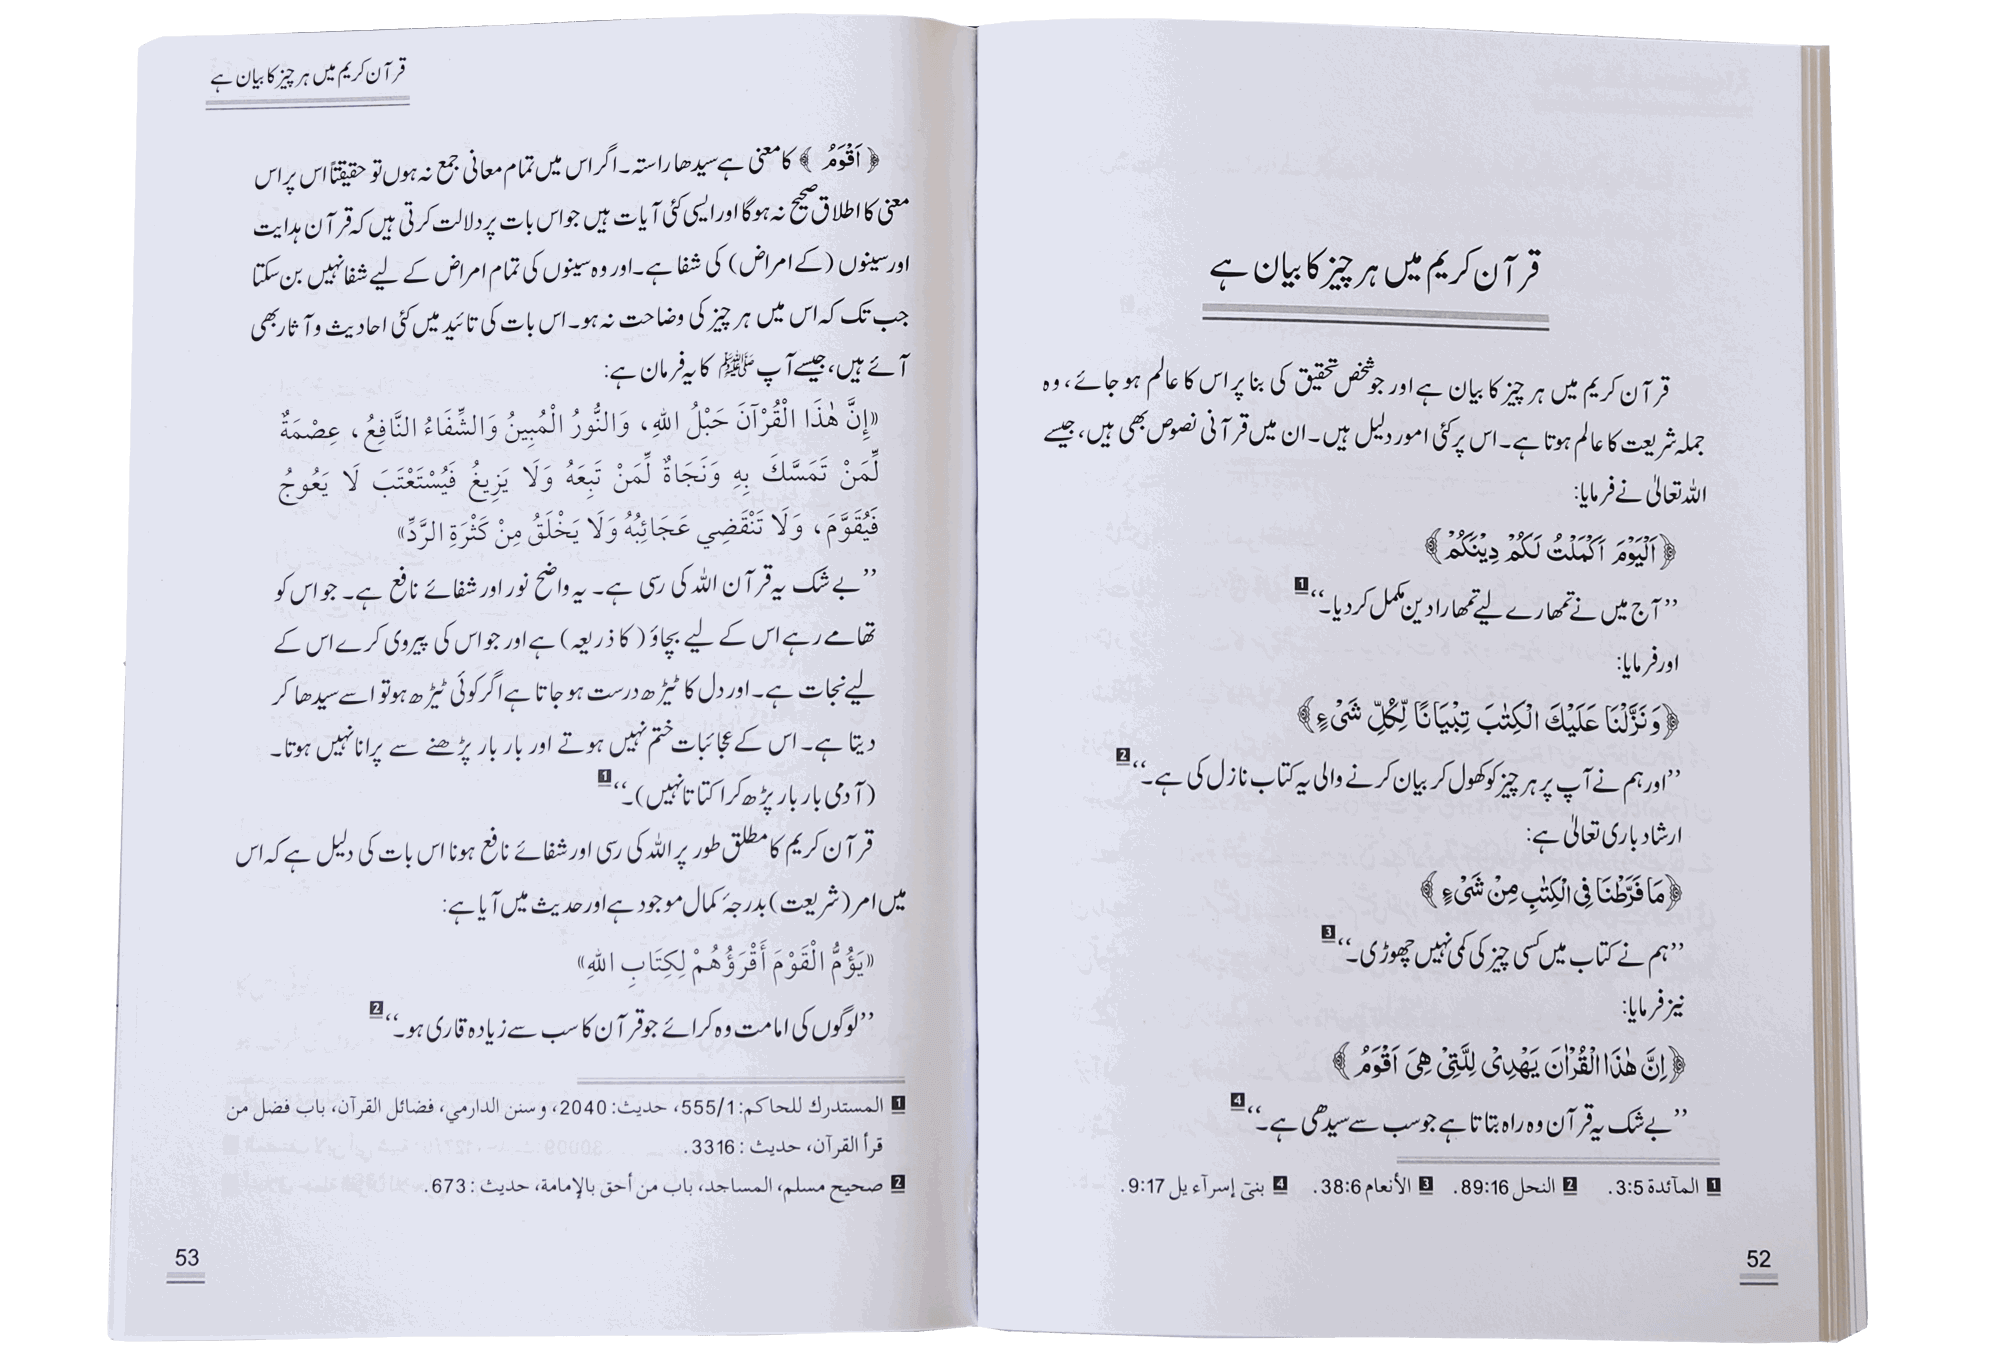 قرآن کریم میں ہر چیز کا بیان ہے
قرآن کریم میں ہر چیز کا بیان ہے اور جو شخص تحقیق کی بنا پر اس کا عالم ہو جائے، وہ
جملہ شریعت کا عالم ہوتا ہے۔ اس پر کئی امور دلیل ہیں۔ ان میں قرآنی نصوص بھی ہیں، جیسے
اللہ تعالیٰ نے فرمایا:
﴿اَلْيَوْمَ اَكْمَلْتُ لَكُمْ دِيْنَكُمْ﴾
’’آج میں نے تمھارے لیے تمھارا دین مکمل کر دیا۔‘‘ 1
اور فرمایا:
﴿وَنَزَّلْنَا عَلَيْكَ الْكِتٰبَ تِبْيَانًا لِّكُلِّ شَيْءٍ﴾
’’اور ہم نے آپ پر ہر چیز کو کھول کر بیان کرنے والی یہ کتاب نازل کی ہے۔‘‘ 2
ارشاد باری تعالیٰ ہے:
﴿مَا فَرَّطْنَا فِي الْكِتٰبِ مِنْ شَيْءٍ﴾
’’ہم نے کتاب میں کسی چیز کی کمی نہیں چھوڑی۔‘‘ 3
نیز فرمایا:
﴿اِنَّ هٰذَا الْقُرْاٰنَ يَهْدِيْ لِلَّتِيْ هِيَ اَقْوَمُ﴾
’’بے شک یہ قرآن وہ راہ بتاتا ہے جو سب سے سیدھی ہے۔‘‘ 4
1 المآئدة 3:5. 2 النحل 89:16. 3 الأنعام 38:6. 4 بنيٓ إسرآءيل 9:17.
52
قرآن کریم میں ہر چیز کا بیان ہے
﴿اَقْوَمُ﴾ کا معنی ہے سیدھا راستہ۔ اگر اس میں تمام معانی جمع نہ ہوں تو حقیقتًا اس پر اس
معنی کا اطلاق صحیح نہ ہوگا اور ایسی کئی آیات ہیں جو اس بات پر دلالت کرتی ہیں کہ قرآن ہدایت
اور سینوں (کے امراض) کی شفا ہے۔ اور وہ سینوں کی تمام امراض کے لیے شفا نہیں بن سکتا
جب تک کہ اس میں ہر چیز کی وضاحت نہ ہو۔ اس بات کی تائید میں کئی احادیث و آثار بھی
آئے ہیں، جیسے آپ ﷺ کا یہ فرمان ہے:
«إِنَّ هٰذَا الْقُرْآنَ حَبْلُ اللهِ، وَالنُّورُ الْمُبِينُ وَالشِّفَاءُ النَّافِعُ، عِصْمَةٌ
لِّمَنْ تَمَسَّكَ بِهِ وَنَجَاةٌ لِّمَنْ تَبِعَهُ وَلَا يَزِيغُ فَيُسْتَعْتَبَ لَا يَعُوجُ
فَيُقَوَّمَ، وَلَا تَنْقَضِي عَجَائِبُهُ وَلَا يَخْلَقُ مِنْ كَثْرَةِ الرَّدِّ»
’’بے شک یہ قرآن اللہ کی رسی ہے۔ یہ واضح نور اور شفائے نافع ہے۔ جو اس کو
تھامے رہے اس کے لیے بچاؤ (کا ذریعہ) ہے اور جو اس کی پیروی کرے اس کے
لیے نجات ہے۔ اور دل کا ٹیڑھ درست ہو جاتا ہے اگر کوئی ٹیڑھ ہو تو اسے سیدھا کر
دیتا ہے۔ اس کے عجائبات ختم نہیں ہوتے اور بار بار پڑھنے سے پرانا نہیں ہوتا۔
(آدمی بار بار پڑھ کر اکتاتا نہیں)۔‘‘ 1
قرآن کریم کا مطلق طور پر اللہ کی رسی اور شفائے نافع ہونا اس بات کی دلیل ہے کہ اس
میں امر (شریعت) بدرجۂ کمال موجود ہے اور حدیث میں آیا ہے:
«يَؤُمُّ الْقَوْمَ أَقْرَؤُهُمْ لِكِتَابِ اللهِ»
’’لوگوں کی امامت وہ کرائے جو قرآن کا سب سے زیادہ قاری ہو۔‘‘ 2
1 المستدرك للحاكم: 555/1، حديث: 2040، و سنن الدارمي، فضائل القرآن، باب فضل من
قرأ القرآن، حديث: 3316.
2 صحيح مسلم، المساجد، باب من أحق بالإمامة، حديث: 673.
53